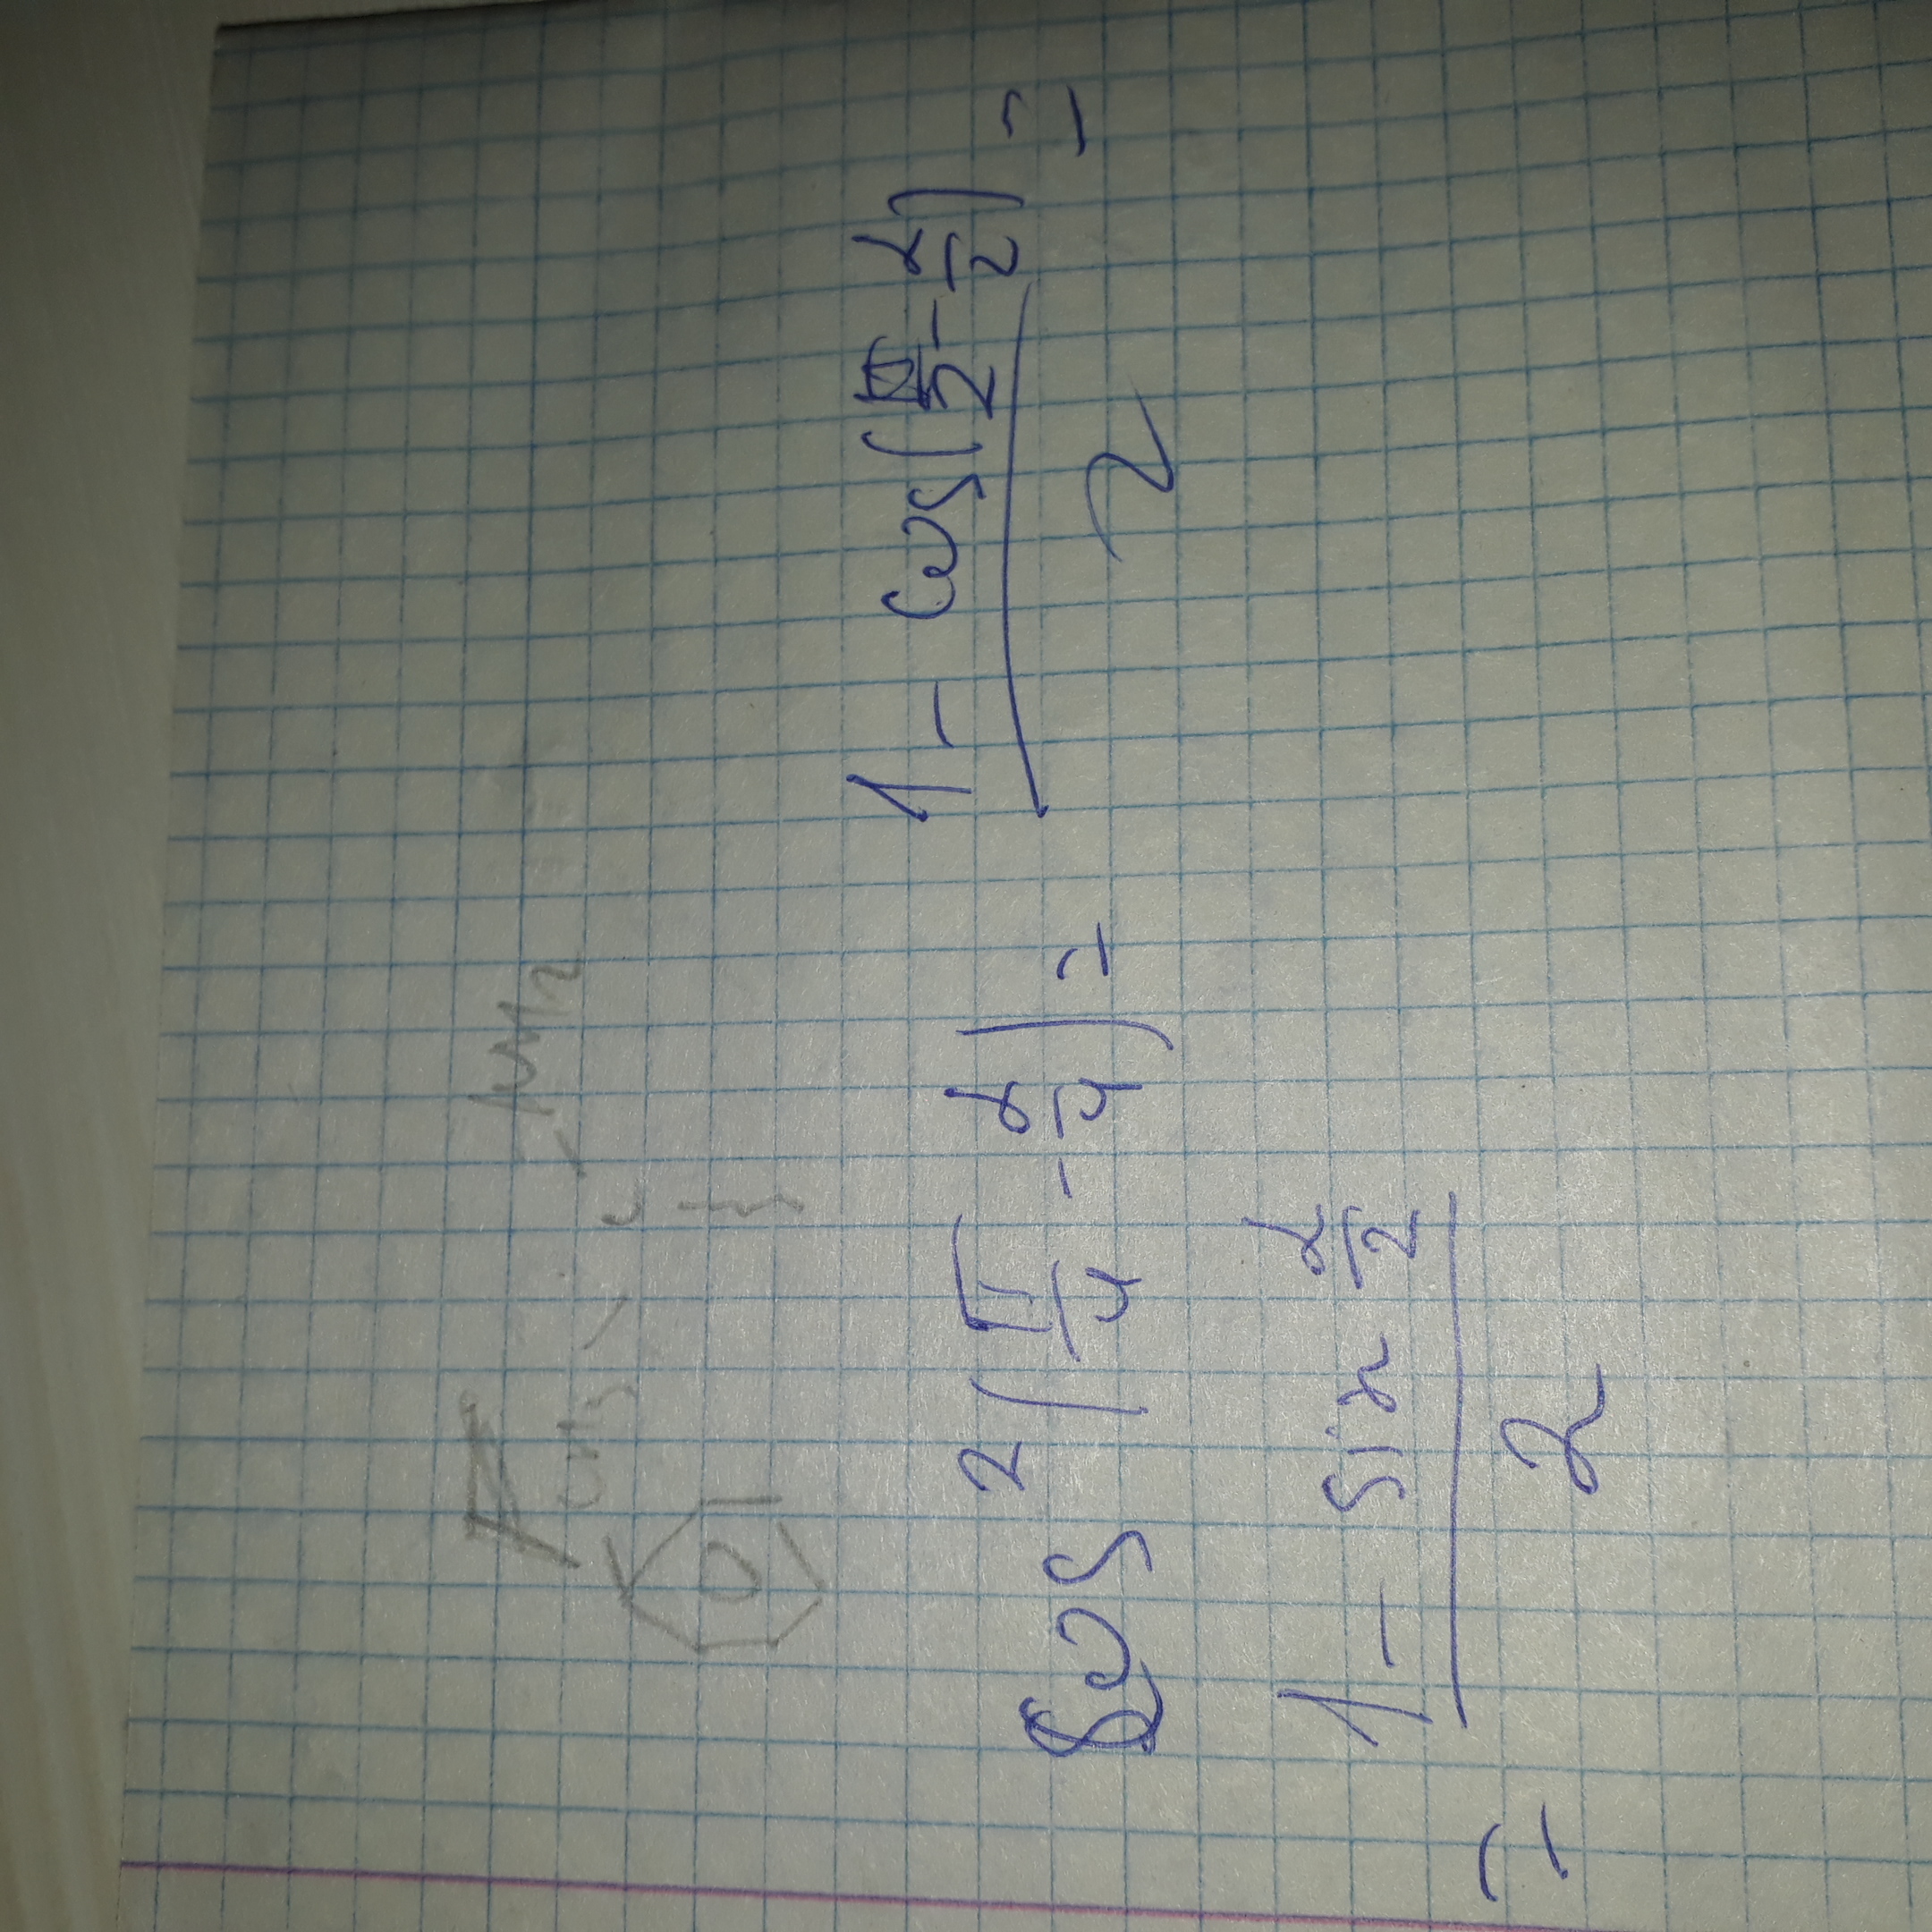 cos²(π/4 - α/4) = (1 - cos(π/2 - α/2))/2 =
= (1 - sin α/2)/2